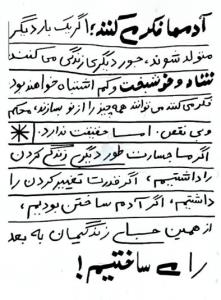 آدمها فکر می کنند؛ اگر یک بار دیگر
متولد شوند، جور دیگری زندگی می کنند
شاد و خوشبخت و کم اشتباه خواهند بود
فکر می کنند می توانند همه چیز را از نو بسازند، محکم
و بی نقص. اما حقیقت ندارد.
اگر ما جسارت طور دیگری زندگی کردن
را داشتیم، اگر قدرت تغییر کردن را
داشتیم، اگر آدم ساختن بودیم،
از همین جای زندگیمان به بعد
را می ساختیم!